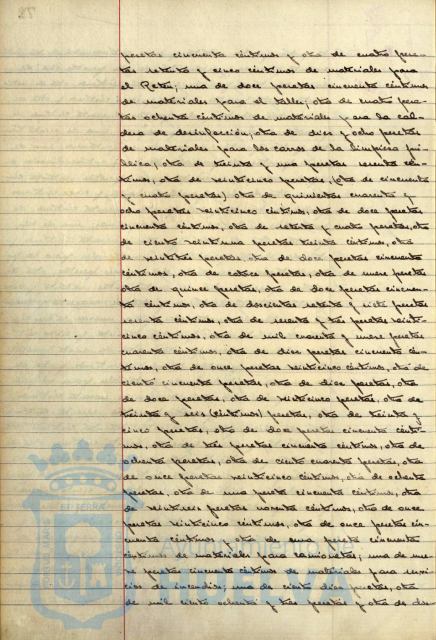 pesetas cincuenta céntimos y otra de cuatro pese-
tas setenta y cinco céntimos de materiales para
el Retén; una de doce pesetas cincuenta céntimos
de materiales para el taller; otra de cuatro pese-
tas ochenta céntimos de materiales para la cal-
dera de desinfección, otra de diez y ocho pesetas
de materiales para los carros de la limpieza pú-
blica; otra de treinta y una pesetas sesenta cén-
timos, otra de veinticinco pesetas, (otra de cincuenta
y cuatro pesetas) otra de quinientas cuarenta y
ocho pesetas veinticinco céntimos, otra de doce pesetas
cincuenta céntimos, otra de setenta y cuatro pesetas, otra
de ciento veintiuna pesetas treinta céntimos, otra
de pesetas otra de doce pesetas cincuenta
céntimos, otra de catorce pesetas, otra de nueve pesetas
otra de quince pesetas, otra de doce pesetas cincuen-
ta céntimos, otra de doscientas setenta y siete pesetas
sesenta céntimos, otra de sesenta y tres pesetas veinti-
cinco céntimos, otra de mil cuarenta y nueve pesetas
cuarenta céntimos, otra de diez pesetas cincuenta cén-
timos, otra de once pesetas veinticinco céntimos, otra de
ciento cincuenta pesetas, otra de diez pesetas, otra
de doce pesetas, otra de veinticinco pesetas, otra de
treinta y seis (céntimos) pesetas, otra de treinta y
cinco pesetas, otra de doce pesetas cincuenta cénti-
mos, otra de tres pesetas cincuenta céntimos, otra de
ochenta pesetas, otra de ciento cuarenta pesetas, otra
de once pesetas veinticinco céntimos, otra de ochenta
pesetas, otra de una peseta cincuenta céntimos, otra
de veintitres pesetas noventa céntimos, otra de once
pesetas veinticinco céntimos, otra de once pesetas cin-
cuenta céntimos y otra de una peseta cincuenta
céntimos de materiales para camionetas; una de nue-
ve pesetas cincuenta céntimos de materiales para servi-
cios de incendios; una de ciento diez pesetas, otra
de mil ciento ochenta y tres pesetas y otra de dos-